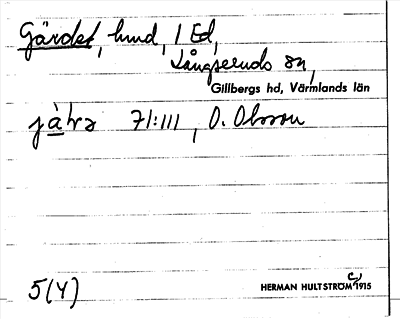 Gärdet, hmd, 1 Ed,
Långseruds sn,
Gillbergs hd, Värmlands län
71:111, O. Olsson
5(4)
HERMAN HULTSTRÖM 1915